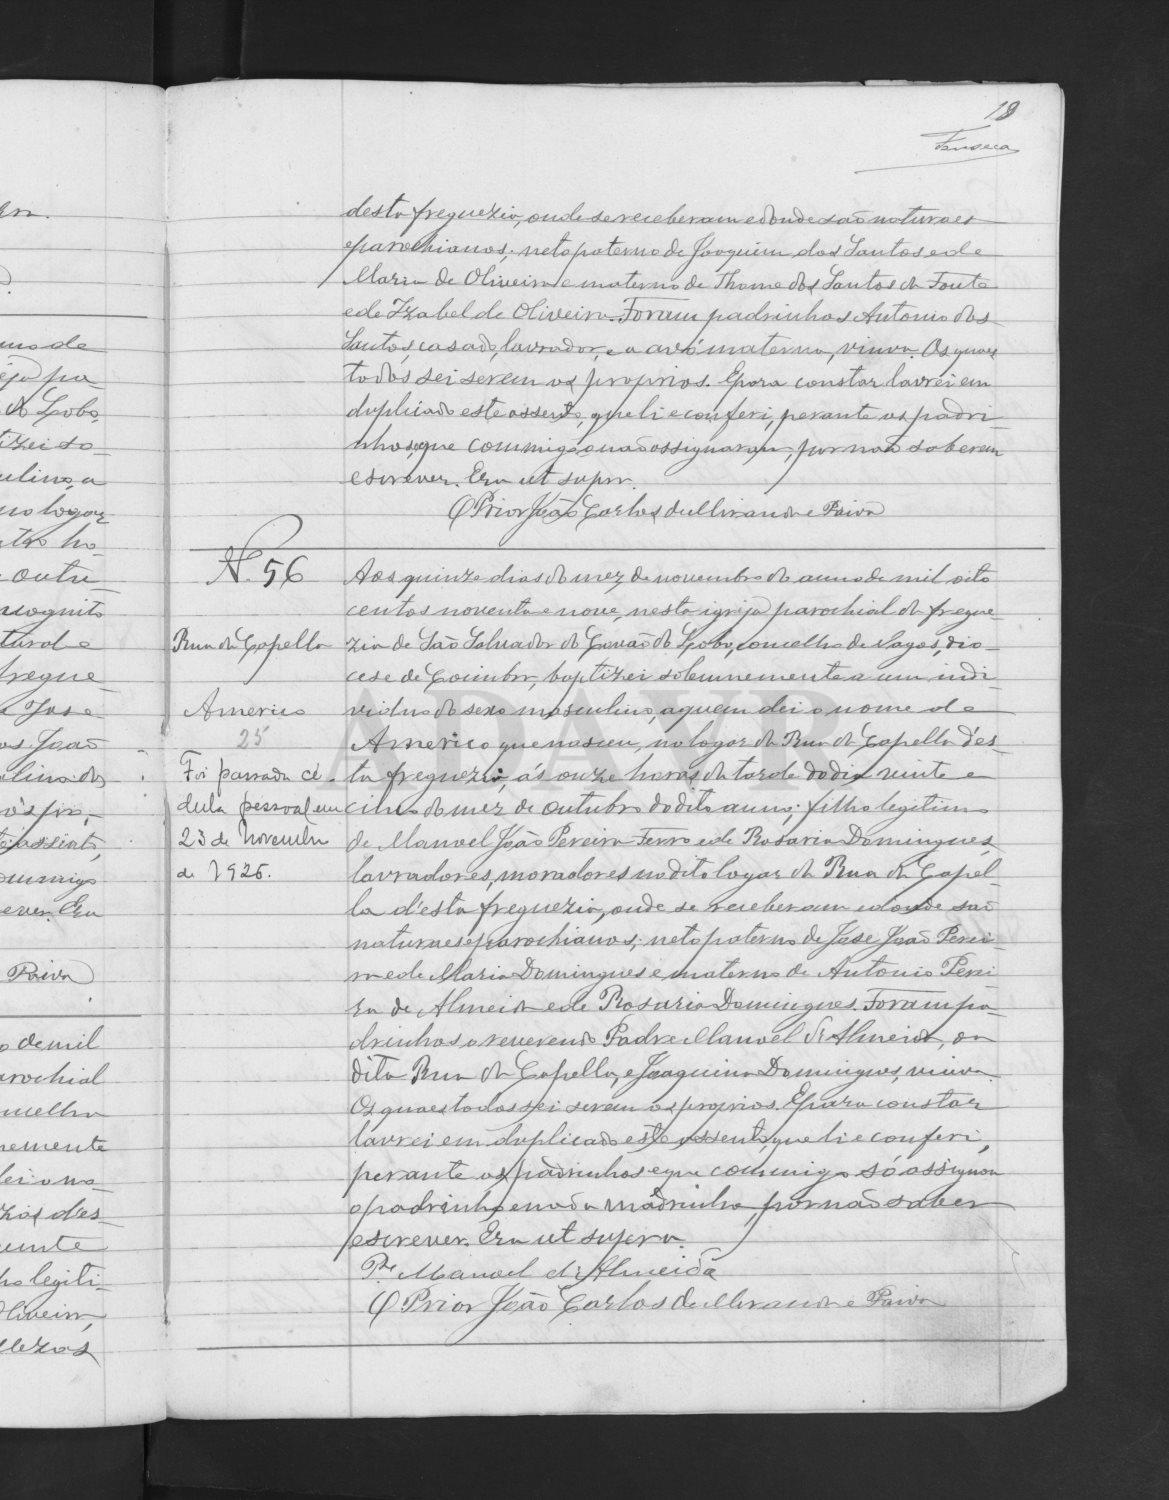 18
Fonseca
desta freguezia, onde se receberam e d'onde são naturaes
e parochianos; neto paterno de Joaquim dos Santos e de
Maria de Oliveira e materno de Thome dos Santos da Fonte
e de Izabel de Oliveira. Foram padrinhos Antonio dos
Santos, casado, lavrador, e a avó materna, viuva. Os quaes
todos sei serem os proprios. E para constar lavrei em
duplicado este assento, que li e conferi, perante os padri-
nhos, que commigo não assignaram, por não saberem
escrever. Era ut supra.
O Prior João Carlos de Miranda e Paiva
N. 56
Rua da Capella
Americo
25
Foi passada cé-
dula pessoal em
23 de Novembro
de 1926.
Aos quinze dias do mez de novembro do anno de mil oito
centos noventa e nove, nesta igreja parochial da fregue-
zia de São Salvador do Covão do Lobo, concelho de Vagos, dio-
cese de Coimbra, baptizei solemnemente a um indi-
viduo do sexo masculino, a quem dei o nome de
Americo que nasceu, no logar da Rua da Capella d'es-
ta freguezia, ás onze horas da tarde do dia vinte e
cinco do mez de outubro do dito anno; filho legitimo
de Manoel João Pereira Ferro e de Rosaria Domingues,
lavradores, moradores no dito logar da Rua da Capel-
la d'esta freguezia, onde se receberam e donde são
naturaes e parochianos; neto paterno de Jose João Perei-
ra e de Maria Domingues e materno de Antonio Perei
ra de Almeida e de Rosaria Domingues. Foram pa-
drinhos o reverendo Padre Manoel d'Almeida, da
dita Rua da Capella, e Joaquina Domingues, viuva.
Os quaes todos sei serem os proprios. E para constar
lavrei em duplicado este assento, que li e conferi,
perante os padrinhos e que commigo só assignou
o padrinho e não a madrinha, por não saber
escrever. Era ut supra.
Pe. Manoel d'Almeida
O Prior João Carlos de Miranda e Paiva
ADAVR